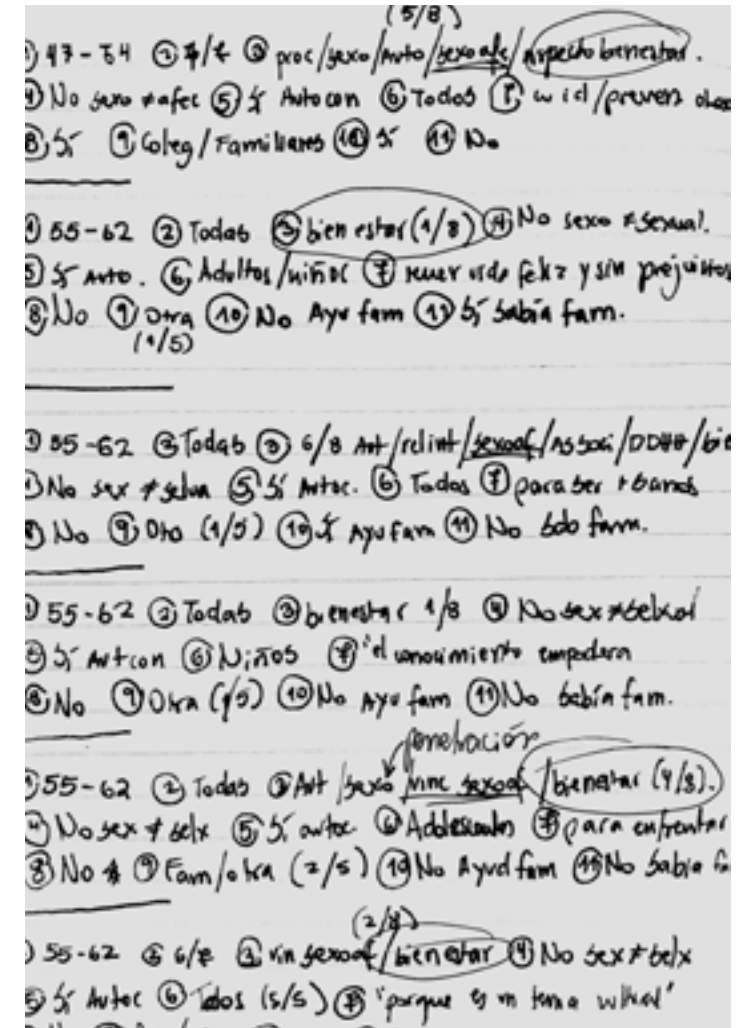 (5/8)
① 47-54 ② ③ proc/sexo/Auto/sexoafe/aspecto bienestar.
④ No sexo ≠ afec ⑤ Sí Autocon ⑥ Todos ⑦ /preven
⑧ Sí ⑨ Coleg/Familiares ⑩ Sí ⑪ No
① 55-62 ② Todas ③ bienestar (1/8) ④ No sexo ≠ sexual.
⑤ Sí Auto. ⑥ Adultos/niños ⑦ feliz y sin prejuicios
⑧ No ⑨ Otra ⑩ No Ayu fam ⑪ Sí sabía fam.
(1/5)
① 55-62 ② Todas ③ 6/8 Aut/relint/sexoaf/Assoxi/DDHH/bie
④ No sex ≠ ⑤ Sí Autoc. ⑥ Todos ⑦ para ser
⑧ No ⑨ Oto (1/5) ⑩ Ayu Fam ⑪ No fam.
① 55-62 ② Todas ③ bienestar 1/8 ④ No sex ≠
⑤ Sí Autcon ⑥ Niños ⑦ "el conocimiento empodera
⑧ No ⑨ Otra (1/5) ⑩ No Ayu fam ⑪ No sabía fam.
penetración
① 55-62 ② Todas ③ Aut/sexo/vinc sexoaf/bienestar (4/8).
④ No sex ≠ selx ⑤ Sí autoc ⑥ Adolescentes ⑦ para enfrentar
⑧ No ⑨ Fam/otra (2/5) ⑩ No Ayud fam ⑪ No sabía
(2/8)
55-62 ② 6/7 ③ vin sexoaf/bienestar ④ No sex ≠ selx
⑤ Sí Autoc ⑥ Todos (5/5) ⑦ "porque es un tema